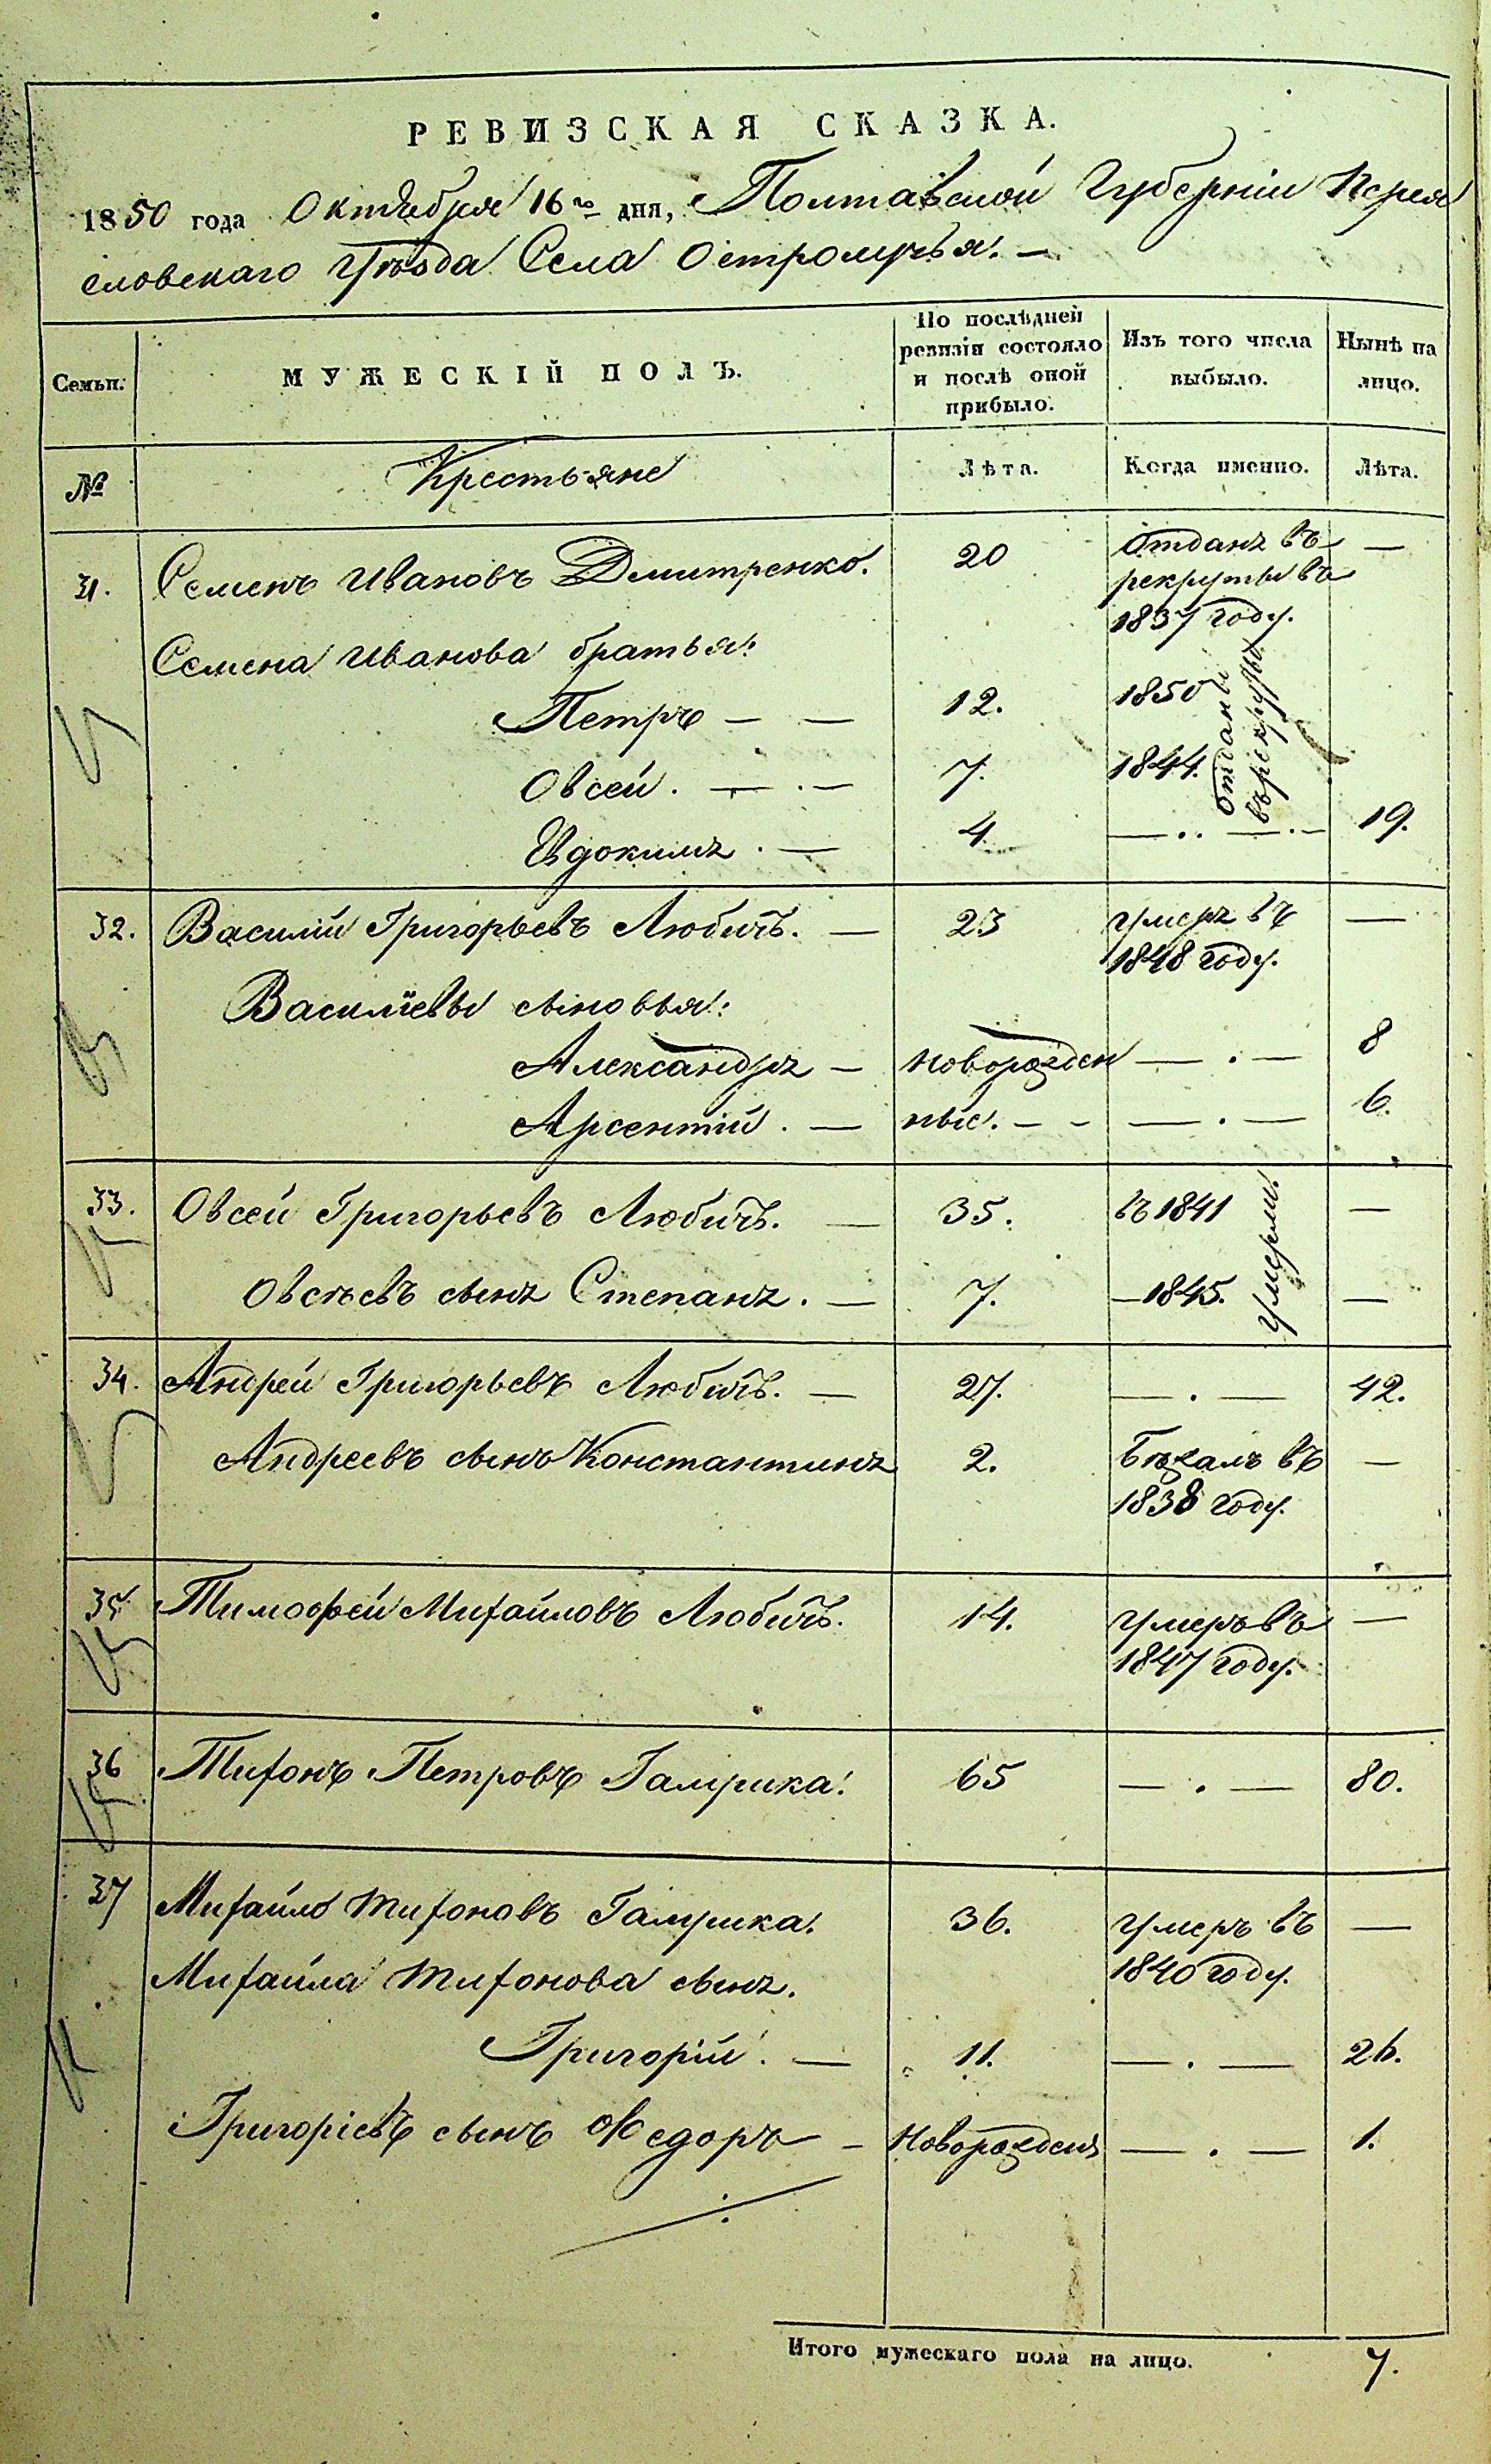 РЕВИЗСКАЯ СКАЗКА.
1850 года Октября 16го дня, Полтавской Губерніи Перея
словскаго Уѣзда Села Остролучья. —
Семьи.
МУЖЕСКІЙ ПОЛЪ.
По послѣдней ревизіи состояло и послѣ оной прибыло.
Изъ того числа выбыло.
Нынѣ на лицо.
№
Крестьяне
Лѣта.
Когда именно.
Лѣта.
31. Семенъ Ивановъ Дмитренко. 20 Отданъ въ —
рекруты въ
1837 году.
Семена Иванова братья:
Петръ — — 12. 1850
отданы
въ рекруты
Овсей. — . — 7. 1844.
Евдокимъ . — 4 — . . — . — 19.
32. Василій Григорьевъ Любичъ. — 23 умеръ въ —
1848 году.
Василіевы сыновья:
Александръ — новорожден — . — 8
Арсентій . — ные. - - — . — 6.
33. Овсей Григорьевъ Любичъ. — 35. въ 1841 —
умерли.
Овсѣевъ сынъ Степанъ. — 7. — 1845. —
34. Андрей Григорьевъ Любичъ. — 27. — . — 42.
Андреевъ сынъ Константинъ 2. Бѣжалъ въ —
1838 году.
35. Тимофей Михайловъ Любичъ. 14. умеръ въ —
1847 году.
36 Тихонъ Петровъ Галушка. 65 — . — 80.
37 Михайло Тихоновъ Галушка. 36. умеръ въ —
1840 году.
Михайла Тихонова сынъ.
Григорій . — 11. — . — 26.
Григоріевъ сынъ Федоръ — Новорожденъ — . — 1.
Итого мужескаго пола на лицо. 7.